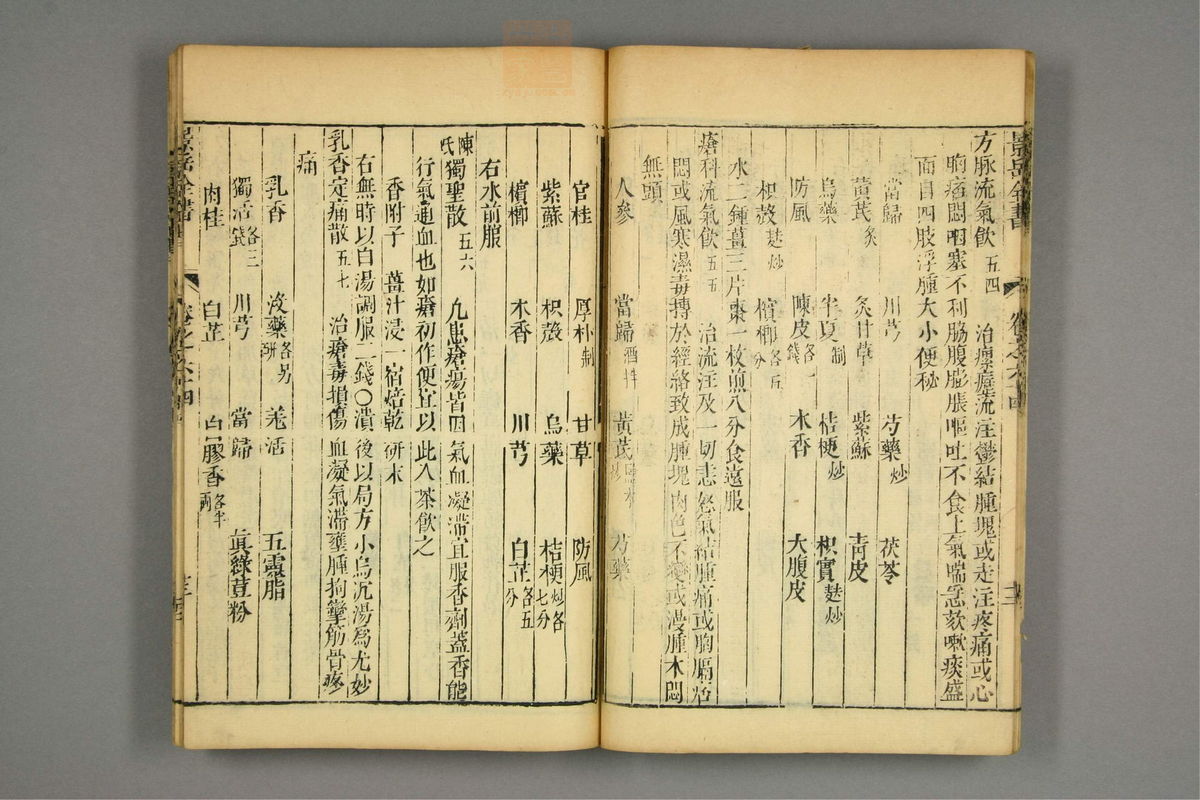 景岳全書
卷之六十四
方脉流氣飲 五四 治瘰癧流注鬱結腫塊或走注疼痛或心
胸痞悶咽塞不利脇腹膨脹嘔吐不食上氣喘急欬嗽痰盛
面目四肢浮腫大小便秘
當歸 川芎 芍藥炒 茯苓
黃芪炙 炙甘草 紫蘇 青皮
烏藥 半夏制 桔梗炒 枳實麩炒
防風 陳皮各一錢 木香 大腹皮
枳殼麩炒 檳榔各五分
水二鍾薑三片棗一枚煎八分食遠服
瘡科流氣飲 五五 治流注及一切恚怒氣結腫痛或胸膈痞
悶或風寒濕毒搏於經絡致成腫塊肉色不變或漫腫木悶
無頭
人參 當歸酒拌 黃芪鹽水炒 芍藥
官桂 厚朴制 甘草 防風
紫蘇 枳殼 烏藥 桔梗炒各七分
檳榔 木香 川芎 白芷各五分
右水煎服
陳氏獨聖散 五六 凡患瘡瘍皆因氣血凝滯宜服香劑蓋香能
行氣通血也如瘡初作便宜以此入茶飲之
香附子 薑汁浸一宿焙乾研末
右無時以白湯調服二錢○潰後以局方小烏沉湯爲尤妙
乳香定痛散 五七 治瘡毒損傷血凝氣滯壅腫拘攣筋骨疼
痛
乳香 沒藥各另研 羌活 五靈脂
獨活各三錢 川芎 當歸 眞綠荳粉
肉桂 白芷 白膠香各半兩
景岳全書
卷之六十四